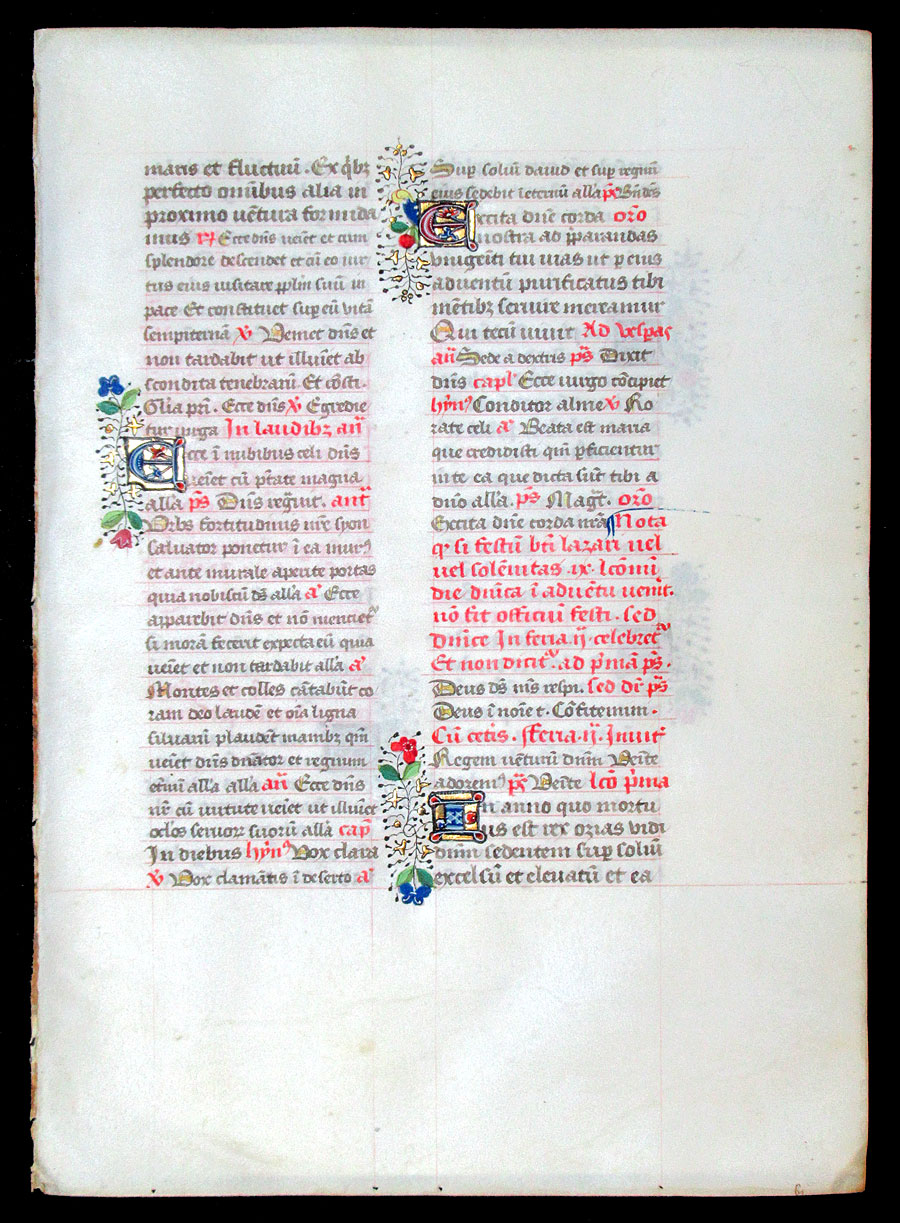 maris et fluctuū. Ex q̄bz
perfecto om̄ibus alia in
proximo uētura formida
mus R̸ Ecce dn̄s ueiet et cum
splendore descendet et cū eo uir
tus eius uisitare pplm suū in
pace Et constituet sup eū vitā
sempiternā v̸ Veniet dn̄s et
non tardabit ut illuīet ab
scondita tenebrarū. Et cōsti.
Glīa pri. Ecce dn̄s v̸ Egredie
tur uirga In laudibz an̄
Ecce ī nubibus celi dn̄s
ueīet cū ptāte magna
alla ps̄ Dn̄s regnit. ant̄
Vrbs fortitudinis nr̄e syon
saluator ponetur ī ea murꝰ
et ante murale aperite portas
quia nobiscū ds̄ all'a a' Ecce
apparebit dn̄s et nō mencietᷣ
si morā fecerit expecta eū quia
ueīet et non tardabit all'a a'
Montes et colles cātabūt co
ram deo laudē et oīa ligna
siluarū plaudēt manibz qm̄
ueīet dn̄s dn̄ator et regnum
etnū all'a all'a an̄ Ecce dn̄s
nr̄ cū uirtute ueīet ut illuīet
oc̄los seruorꝝ suorū all'a cap̄
In diebus hȳnꝰ Vox clara
v̸ Vox clamātis ī deserto a'
Sup soliū dauid et sup regnū
eius sedebit īeternū alla ps̄ Bn̄ds
Excita dn̄e corda or̄o
nostra ad pparandas
vnigeīti tui uias ut p eius
aduentū purificatus tibi
mētibz seruire mereamur
Qui tecū uiuit Ad vespas
an̄ Sede a dextris ps̄ Dixit
dn̄s capl' Ecce uirgo cōcipiet
hȳnꝰ Conditor alme v̸ Ro
rate celi a' Beata est maria
que credidisti qm̄ pficientur
in te ea que dicta sūt tibi a
dn̄o all'a. ps̄ Magt̄. or̄o
Excita dn̄e corda nr̄a ¶ Nota
qꝫ si festū bti lazari uel
uel solēnitas ix. lcōnū
die dn̄ica ī aduētu uenit.
nō fit officiū festi. sed
dn̄ice In feria ij. celebretᷣ
Et non dicitᷣ. ad p'mā ps̄.
Deus ds̄ m̄s respi. sed dr̄ ps̄
Deus ī noīe t. Cōfitemini.
Cū cet'is. fferia. ij. Inuit'
Regem uēturū dn̄m Veīte
adoremꝰ ps̄ Veīte lcō p'ma
In anno quo mortu
us est rex ozias vidi
dn̄m sedentem sup soliū
excelsū et eleuatū et ea